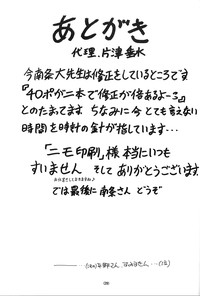 あとがき
代理.片津垂水
今南条大先生は修正をしているところです
『40ポが二本で修正が倍あるよーう』
とのたまってます ちなみに今とても言えない
時間を時計の針が指しています…
「ニモ印刷」様本当にいつも
すいません そして ありがとうございます
では最後に南条さん どうぞ